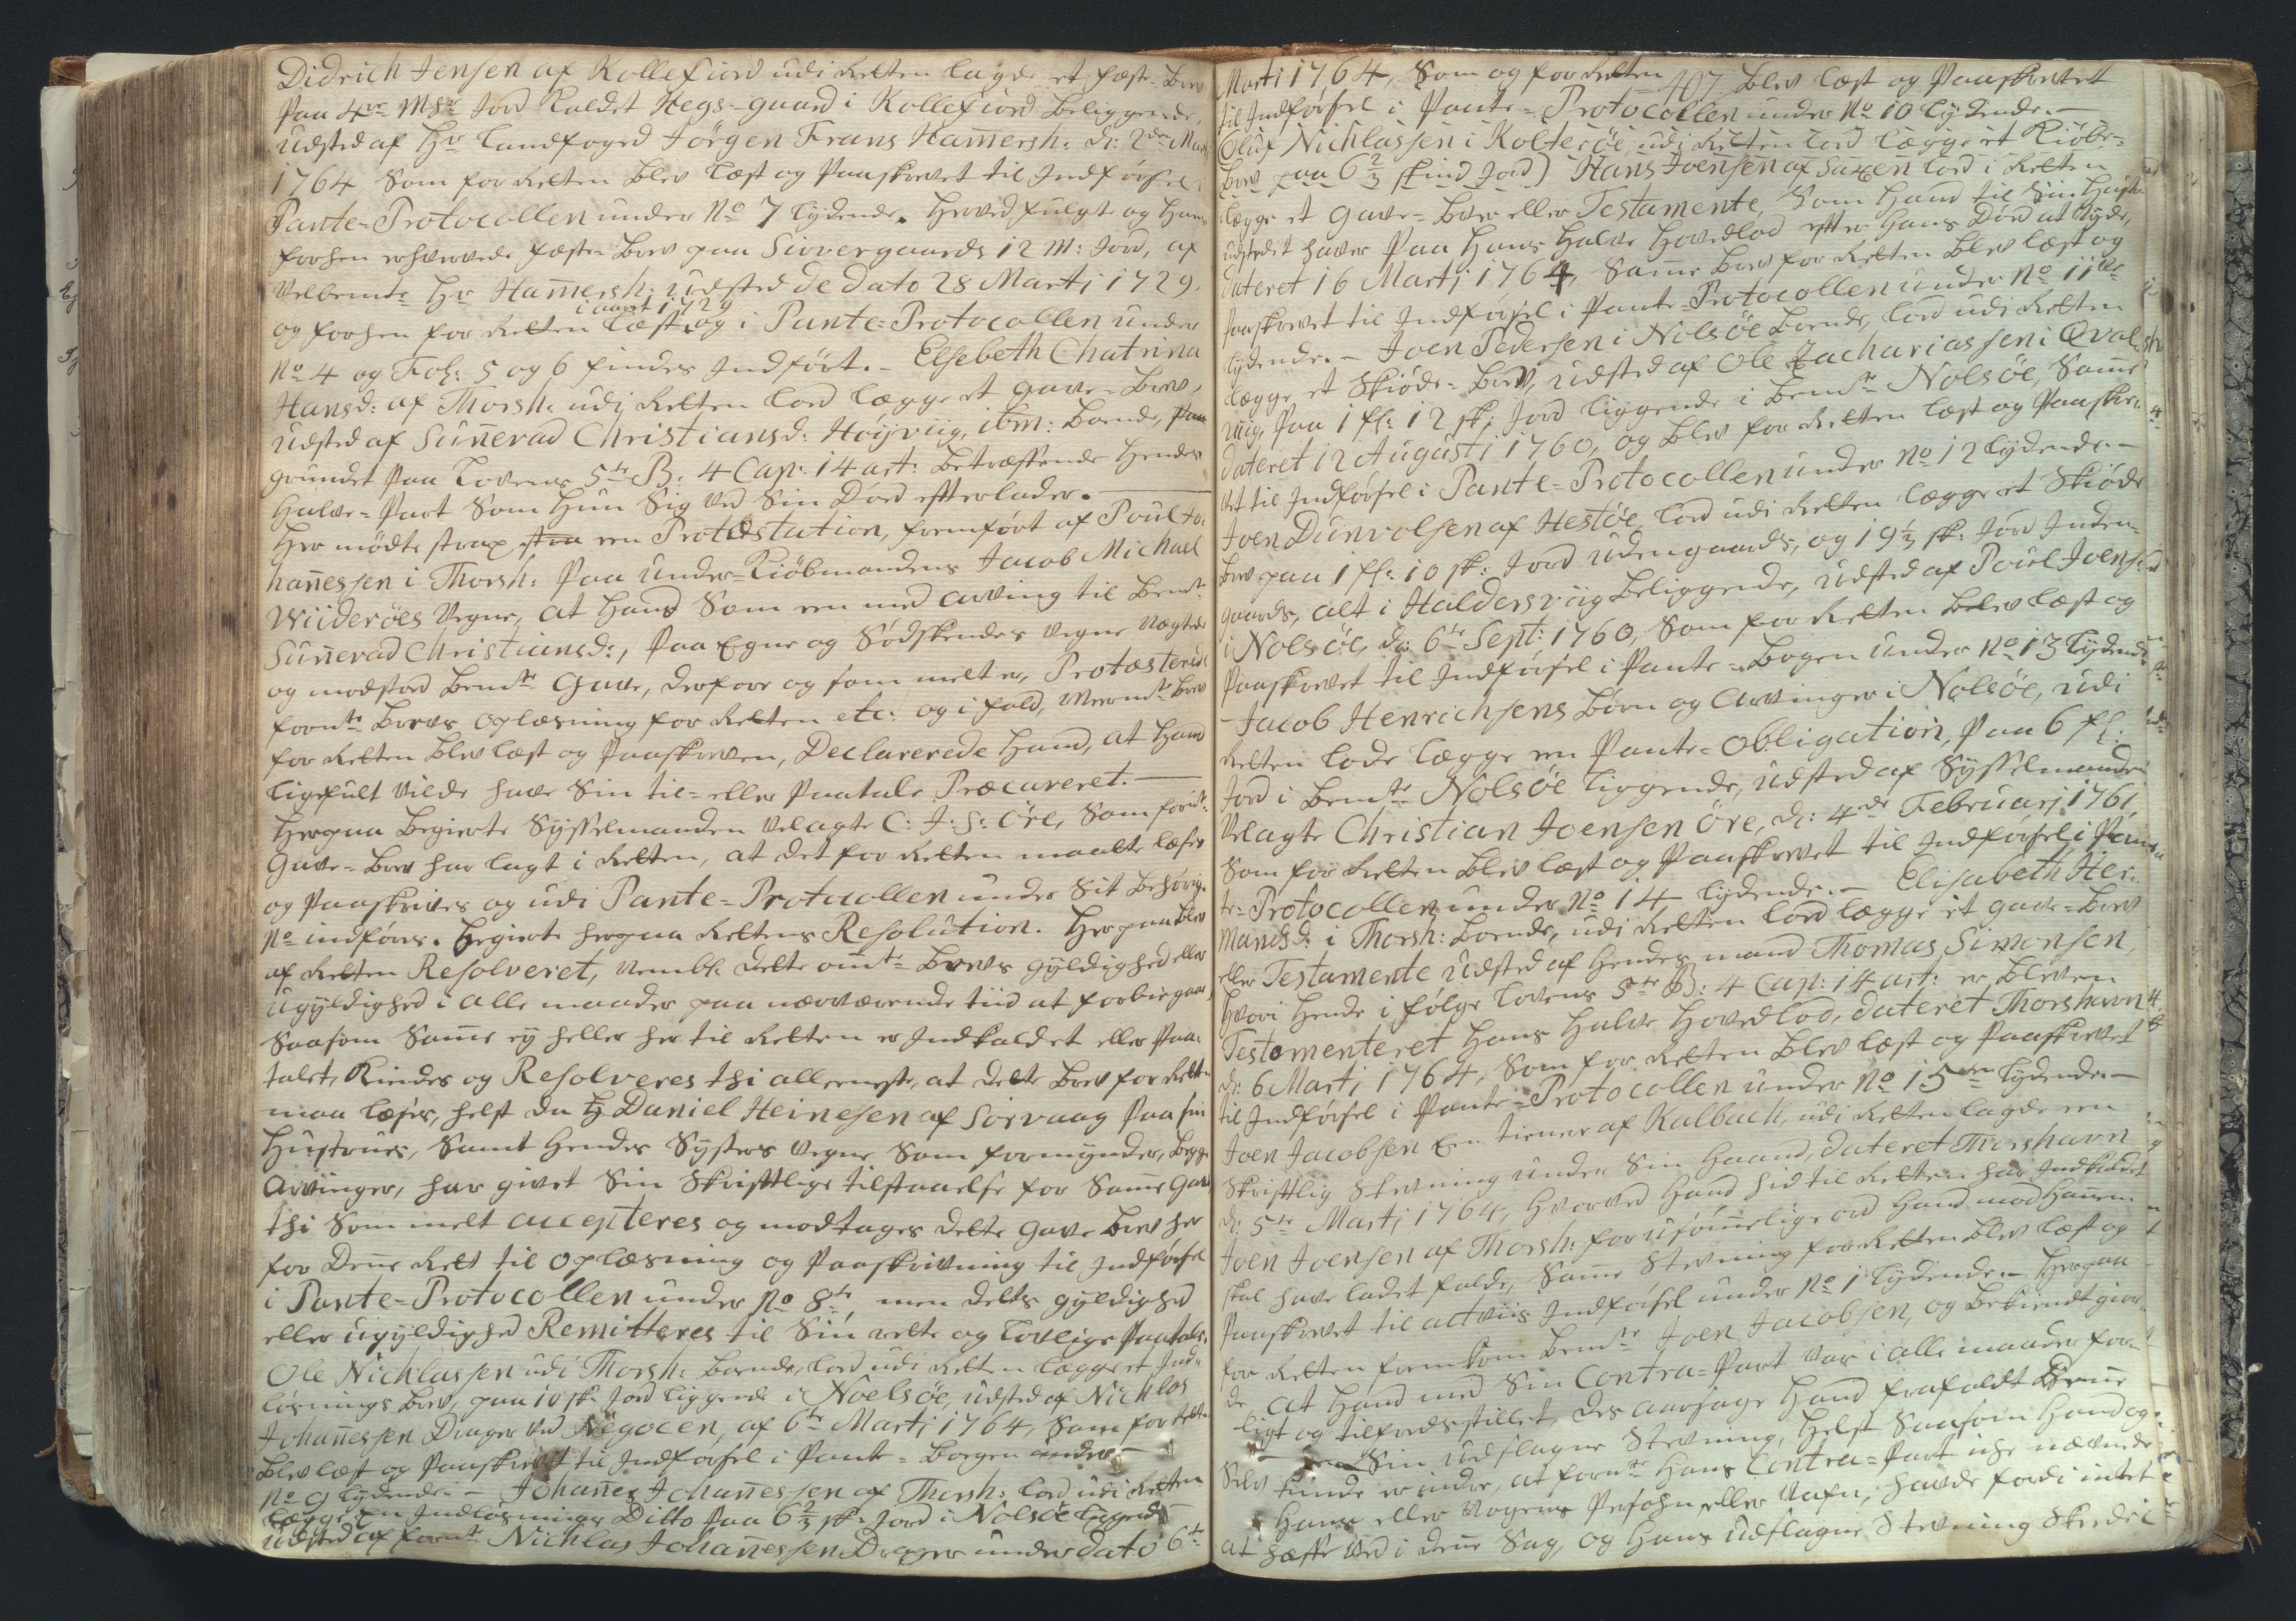 Didrich Jensen af Kollefiord udi Retten lagde et fæste-Brev
Paa 4re Mk Jord Kaldet Hegs-guard i Kollefiord Beliggende,
udsted af Hr Landfoged Jörgen Frans Ham̄ersh: d: 2den Marti
1764, Som for Retten Blev Læst og Paaskrevet til Indförsel i
Pante-Protocollen under No 7 Lydende. Herved fulgte og Hans
forhen erhvervede fæste Brev paa Siovergaards 12 M: Jord, af
Velbemte Hr Ham̄ersh: udsted de Dato 28 Martj 1729.
i aaret 1729
og forhen for Retten Læst, og i Pante-Protocollen under
No 4 og Fol: 5 og 6 findes Indfört. - Elsebeth Chatrina
Hansd: af Thorsh: udi Retten Lod Lægge et Gave-Brev,
udsted af Sun̄evad Christiansd: Höijviig, ibm: Boende, paa
grundet Paa Lovens 5te B: 4 Cap: 14 art: Betræffende Hendes
Halve-Part Som Hun Sig ved Sin Död efterlader. -
Her mödte strax een Protestation, fremfört af Poul Jo-
han̄essen i Thorsh: Paa under-Kiöbmandens Jacob Michael
Wiideröes Vegne, at Hand Som een med arving til Bemte
Sun̄evad Christiansd:, Paa Egne og Södskendes Vegne Nægtede
og modstod Bemte Gave, derfore og som melt er, Protæsterede
fornte Brevs Oplæsning for Retten etc: og i fald, Meermte Brev
for Retten Blev læst og Paaskreven, Declarerede Hand, at Hand
Ligefult vilde have Sin til- eller Paatale Præcaveret. -
Herpaa Begierte Sysselmanden Velagte C: J: S: Öre, Som fornte
Gave-Brev har lagt i Retten, at det for Retten maatte læses
og Paaskrives og udi Pante-Protocollen under Sit Behörige
No indföres. Begierte herpaa Rettens Resolution. Her paa Blev
af Retten Resolveret, nembl: dette omte Brevs gyldighed eller
ugyldighed i alle maader paa nærværende tiid at forbiegaae,
Saasom Sam̄e ej heller her til Retten er Indkaldet eller Paa-
talet, Kiendes og Resolveres thi allerneste, at dette Brev for Retten
maa læses, helst da Daniel Heinesen af Sörvaag Paa sin
Hustrues, Samt hendes Systers Vegne Som formynder, Begge
Arvinger, har givet Sin Skriftlige tilstaaelse for Sam̄e Gave
thi Som melt accepteres og modtages dette Gave Brev her
for Den̄e Rett til Oplæsning og Paaskrivning til Indförsel
i Pante-Protocollen under No 8te, men detts gyldighed
eller ugyldighed Remitteres til Sin rette og Lovlige Paatale.
Ole Nichlassen udi Thorsh: Boende, Lod udi Retten Lægge et Ind-
lösnings Brev, paa 10 sk: Jord Liggende i Noelsöe, udsted af Nichlas
Johan̄essen Drager ved Negocen, af 6te Martj 1764, Som for Retten
Blev læst og Paaskrevet til Indförsel i Pante-Bogen under
No 9 Lydende. - Johan̄es Johan̄essen af Thorsh: Lod udi Retten
Lægge en Indlösnings Ditto Paa 6 2/3 sk: Jord i Nolsöe Liggende
udsted af fornte Nichlas Johan̄essen Drager under dato 6te
407
Marti 1764, Som og for Retten Blev læst og Paaskrevet
til Indförsel i Pante-Protocollen under No 10 Lydende. -
Oluf Nichlassen i Koltersöe, udi Retten Lod Lægge et Kiöbe-
Brev paa 6 2/3 skind Jord) Hans Joensen af Saxen Lod i Retten
Lægge et Gave-Brev eller Testamente, Som Hand til Sin Hustrue
udstedet haver Paa Hans Halve Hovedlod efter Hans Död at Nyde,
dateret 16 Martj 1764, Sam̄e Brev for Retten Blev læst og
Paaskrevet til Indförsel i Pante-Protocollen under No 11te
Lydende. - Joen Pedersen i Nolsöe Boende, Lod udi Retten
Lægge et Skiöde-Brev, udsted af Ole Zachariassen i Qval-
viig, Paa 1 fl: 12 sk: Jord Liggende i Bemte Nolsöe, Sam̄e
dateret 12 Augusti 1760, og Blev for Retten læst og Paaskre-
vet til Indförsel i Pante-Protocollen under No 12 Lydende. -
Joen Dunvolsen af Hestöe, Lod udi Retten Lægge et Skiöde
Brev paa 1 fl: 10 sk: Jord udengaards, og 19 1/3 sk: Jord Inden-
gaards, alt i Haldersviig Beliggende, udsted af Poul Joens:
i Nolsöe, d: 6te Sept: 1760, Som for Retten Blev læst og
Paaskrevet til Indförsel i Pante-Bogen under No 13 Lydende
- Jacob Henrichsens Börn og Arvinger i Nolsöe, udi
Retten Lode Lægge en Pante-Obligation, Paa 6 fl:
Jord i Bemte Nolsöe Liggende, udsted af Sysselmanden
Velagte Christian Joensen Öre, d: 4de Februarj 1761,
Som for Retten Blev læst og Paaskrevet til Indförsel i Pan-
te-Protocollen under No 14 Lydende. - Elisabeth Her-
mansd: i Thorsh: Boende, udi Retten Lod Lægge et Gave-Brev
eller Testamente udsted af Hendes mand Thomas Simonsen,
Hvori Hende i fölge Lovens 5te B: 4 Cap: 14 art: er Bleven
Testamenteret Hans Halve Hovedlod, dateret Thorshavn
d: 6 Martj 1764, Som for Retten Blev læst og Paaskrevet
til Indförsel i Pante-Protocollen under No 15ten Lydende. -
Joen Jacobsen Een tiener af Kalbach, udi Retten lagde een
Skriftlig Stevning under Sin Haand, dateret Thorshavn
d: 5te Martj 1764, Hvorved Hand hid til Retten har Indkaldet
Joen Joensen af Thorsh: for usöm̄elige ord Hand mod Han̄em
skal have ladet falde, Sam̄e Stevning for Retten Blev læst og
Paaskrevet til actviis Indförsel under No 1 Lydende. - Herpaa
for Retten fremkom Bemte Joen Jacobsen, og Bekiendtgior-
de, at Hand med Sin Contra-Part var i alle maader for-
ligt og tilfredsstillet, des aarsage Hand frafaldt Den̄e
Sin udslagne Stevning, Helst Saasom Hand og
Selv kunde erindre, at fornte Hans Contra-Part icke nævnede
Hans eller Nogens Persohn eller Nafn, havde fordi intet
at hæfte ved i den̄e Sag, og Hans udslagne Stevning Skede i